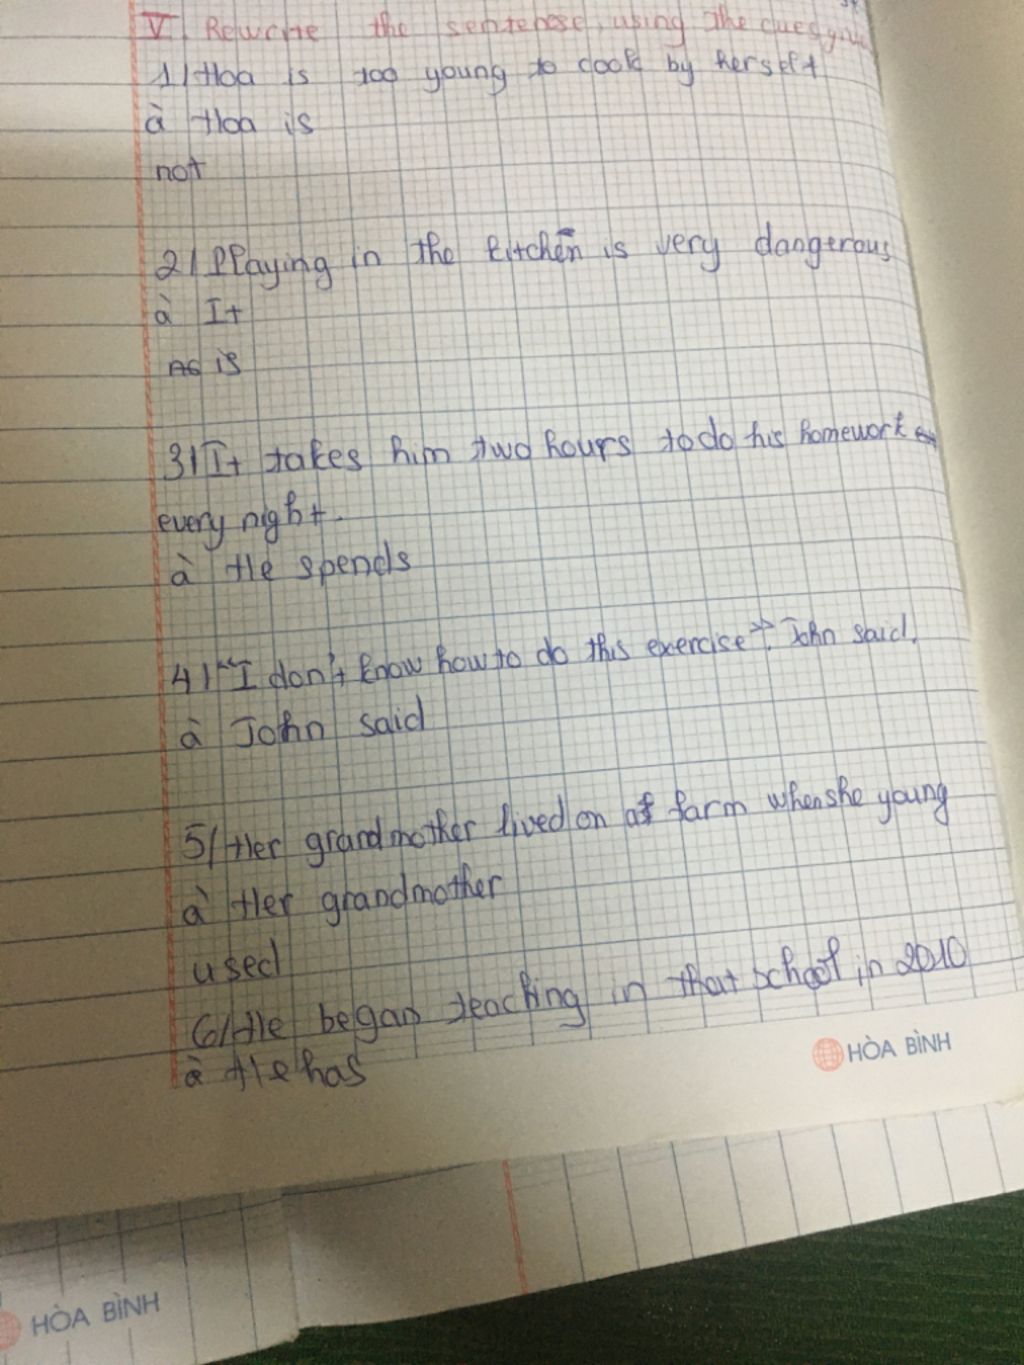 V. Rewrite the sentenese, using the cues
1/ Hoa is too young to cook by herself
à Hoa is
not
2/ Playing in the kitchen is very dangerous
à It
is
3/ It takes him two hours to do his homework
every night.
à He spends
4/ "I don't know how to do this exercise". John said.
à John said
5/ Her grandmother lived on a farm when she young
à Her grandmother
used
6/ He began teaching in that school in 2010
à He has
HÒA BÌNH
HÒA BÌNH